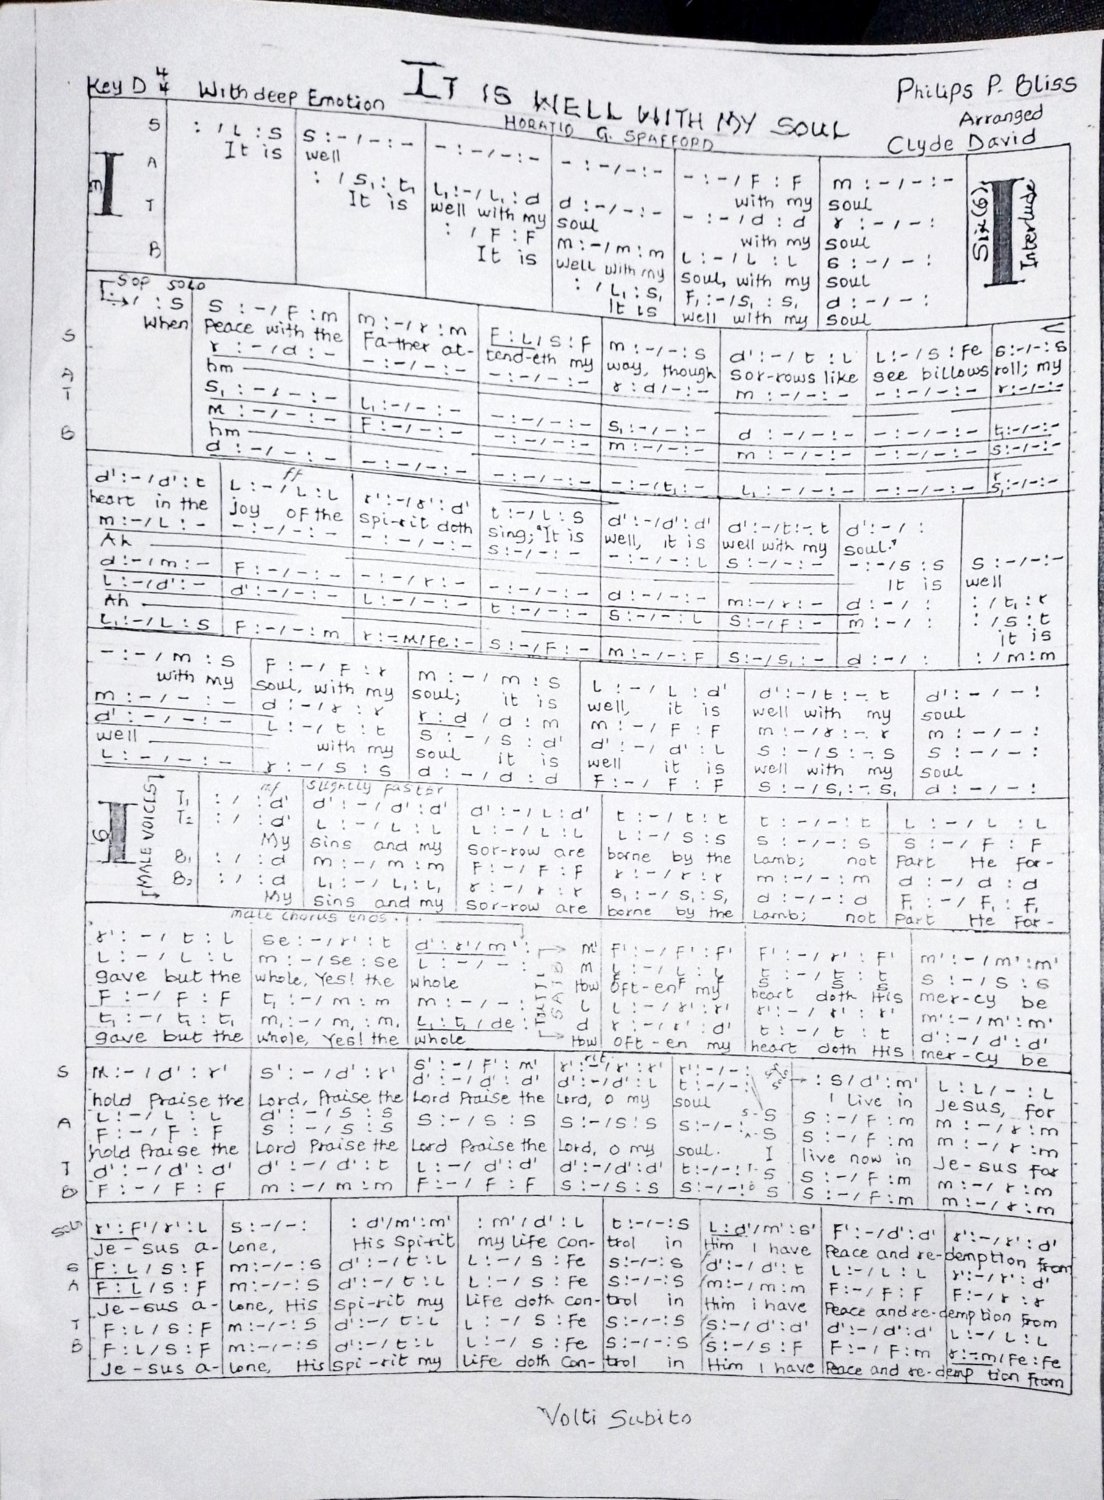 Key D 4/4 With deep Emotion IT IS WELL WITH MY SOUL Philips P. Bliss
HORATIO G. SPAFFORD
Arranged
Clyde David
S : / L : S S : - / - : - - : - / - : - - : - / - : - - : - / F : F m : - / - : -
It is well with my soul
A : / S₁ : t₁ L₁ : - / L₁ : d d : - / - : - - : - / d : d r : - / - :
It is well with my soul with my soul
T : / F : F m : - / m : m L : - / L : L s : - / - :
It is well with my soul, with my soul
B : / L₁ : S₁ F₁ : - / S₁ : S₁ d : - / - :
It is well with my soul
Six(6) Interlude
Sop solo
: S S : - / F : m m : - / r : m F : L / S : F m : - / - : S d' : - / t : L L : - / S : Fe S : - / - : S
When Peace with the Fa-ther at- tend-eth my way, though sor-rows like see billows roll; my
r : - / d : - - : - / - : - - : - / - : - r : d / - : - m : - / - : - - : - / - : - r : - / - : -
hm
S₁ : - / - : - L₁ : - / - : - - : - / - : - S₁ : - / - : - d : - / - : - - : - / - : - t₁ : - / - : -
m : - / - : - F : - / - : - - : - / - : - m : - / - : - m : - / - : - - : - / - : - S : - / - : -
hm
d : - / - : - - : - / - : - - : - / - : - - : - / t₁ : - L₁ : - / - : - - : - / - : -
d' : - / d' : t L : - / L : L r' : - / r' : d' t : - / L : S d' : - / d' : d' d' : - / t : - t d' : - / - :
ff
heart in the joy of the spi-rit doth sing; "It is well, it is well with my soul."
m : - / L : - - : - / - : - - : - / - : - S : - / - : - - : - / - : L S : - / - : - - : - / S : S S : - / - : -
Ah It is well
d : - / m : - F : - / - : - - : - / r : - - : - / - : - d : - / - : - m : - / r : - d : - / : : / t₁ : r
L : - / d' : - d' : - / - : - L : - / - : - t : - / - : - S : - / - : L S : - / F : - m : - / : : / S : t
Ah it is
L₁ : - / L : S F : - / - : m r : - m / Fe : - S : - / F : - m : - / - : F S : - / S₁ : - d : - / : : / m : m
- : - / m : S F : - / F : r m : - / m : S L : - / L : d' d' : - / t : - t d' : - / - :
with my soul, with my soul; it is well, it is well with my soul
m : - / - : - d : - / r : r r : d / d : m m : - / F : F m : - / r : - r m : - / - :
d' : - / - : - L : - / t : t S : - / S : d' d' : - / d' : L S : - / S : - S S : - / - :
well with my soul it is well it is well with my soul
L : - / - : - r : - / S : S d : - / d : d F : - / F : F S : - / S₁ : - S₁ d : - / - :
6 MALE VOICES mf slightly faster
T₁ : / : d' d' : - / d' : d' d' : - / L : d' t : - / t : t t : - / - : t L : - / L : L
T₂ : / : d' L : - / L : L L : - / L : L L : - / S : S S : - / - : S S : - / F : F
My sins and my sor-row are borne by the Lamb; not Part He for-
B₁ : / : d m : - / m : m F : - / F : F r : - / r : r m : - / - : m d : - / d : d
B₂ : / : d L₁ : - / L₁ : L₁ r : - / r : r S₁ : - / S₁ : S₁ d : - / - : d F₁ : - / F₁ : F₁
My sins and my sor-row are borne by the Lamb; not Part He For-
male chorus ends
r' : - / t : L se : - / r' : t d' : r' / m' : m' F' : - / F' : F' F' : - / r' : F' m' : - / m' : m'
L : - / L : L m : - / se : se L : - / - : m L : - / L : L S : - / S : S
gave but the whole, Yes! the whole How Oft-en my heart doth His mer-cy be
F : - / F : F t₁ : - / m : m m : - / - : L L : - / r' : r' r' : - / r' : r' m' : - / m' : m'
t₁ : - / t₁ : t₁ m₁ : - / m₁ : m₁ L₁ : t₁ / de : d r : - / r' : d' t : - / t : t d' : - / d' : d'
gave but the whole, Yes! the whole How Oft-en my heart doth His mer-cy be
TUTTI SATB
S M : - / d' : r' S' : - / d' : r' S' : - / F' : m' r' : - / r' : r' r' : - / - : - : S / d' : m' L : L / - : L
d' : - / d' : d' d' : - / d' : L t : - / - : -
rit.
hold Praise the Lord, Praise the Lord Praise the Lord, o my soul I live in Jesus, for
A L : - / L : L d' : - / S : S S : - / S : S S : - / S : S S : - / - : - S S : - / F : m m : - / r : m
F : - / F : F S : - / S : S S : - / F : m m : - / r : m
hold Praise the Lord Praise the Lord Praise the Lord, o my soul. I live now in Je-sus for
T d' : - / d' : d' d' : - / d' : t L : - / d' : d' d' : - / d' : d' t : - / - : S S : - / F : m m : - / r : m
B F : - / F : F m : - / m : m F : - / F : F S : - / S : S S : - / - : S S : - / F : m m : - / r : m
r' : F' / r' : L S : - / - : : d' / m' : m' : m' / d' : L t : - / - : S L : d' / m' : S' F' : - / d' : d' r' : - / r' : d'
Je-sus a- lone, His Spi-rit my life con- trol in Him I have Peace and re-demption from
S F : L / S : F m : - / - : S d' : - / t : L L : - / S : Fe S : - / - : S d' : - / d' : t L : - / L : L r' : - / r' : d'
A F : L / S : F m : - / - : S d' : - / t : L L : - / S : Fe S : - / - : S m : - / m : m F : - / F : F F : - / r : r
Je-sus a- lone, His Spi-rit my Life doth con- trol in Him i have Peace and re-demption from
T F : L / S : F m : - / - : S d' : - / t : L L : - / S : Fe S : - / - : S S : - / d' : d' d' : - / d' : d' L : - / L : L
B F : L / S : F m : - / - : S d' : - / t : L L : - / S : Fe S : - / - : S S : - / S : F F : - / F : m r : - m / Fe : Fe
Je-sus a- lone, His Spi-rit my Life doth con- trol in Him I have Peace and re-demp tion from
Volti Subito